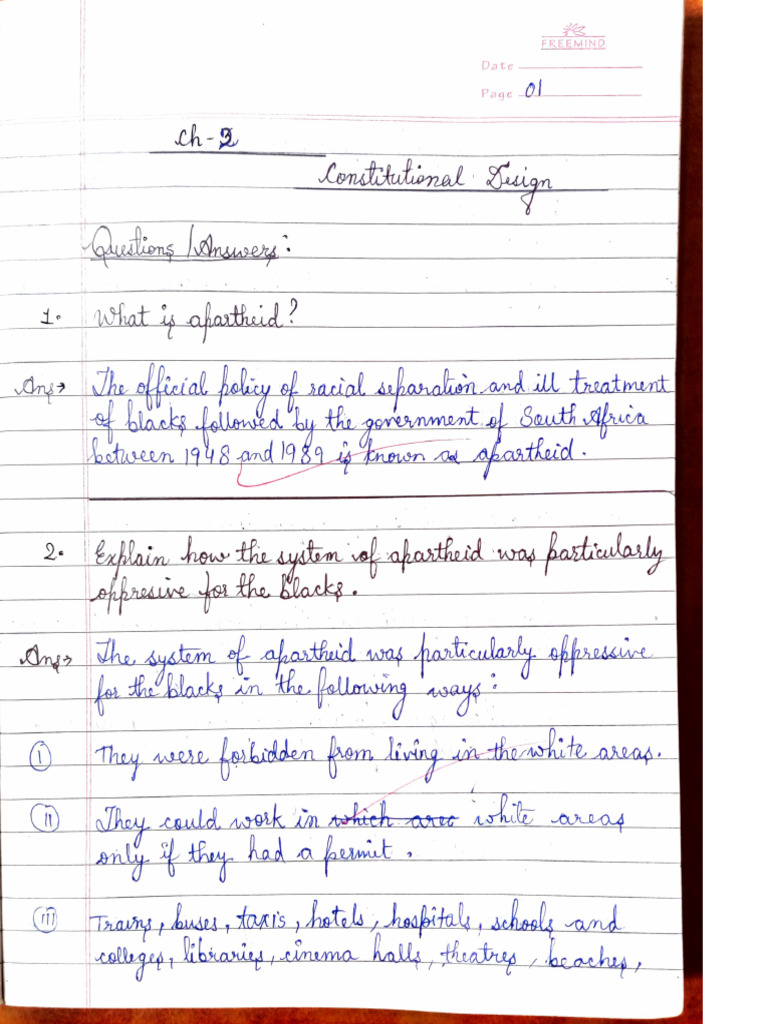 FREEMIND
Date
Page 01
Ch-3
Constitutional Design
Questions/Answers:
1. What is apartheid?
Ans→ The official policy of racial separation and ill treatment
of blacks followed by the government of South Africa
between 1948 and 1989 is known as apartheid.
2. Explain how the system of apartheid was particularly
oppresive for the blacks.
Ans→ The system of apartheid was particularly oppressive
for the blacks in the following ways:
(i) They were forbidden from living in the white areas.
(ii) They could work in which are white areas
only if they had a permit.
(iii) Trains, buses, taxis, hotels, hospitals, schools and
colleges, libraries, cinema halls, theatres, beaches,